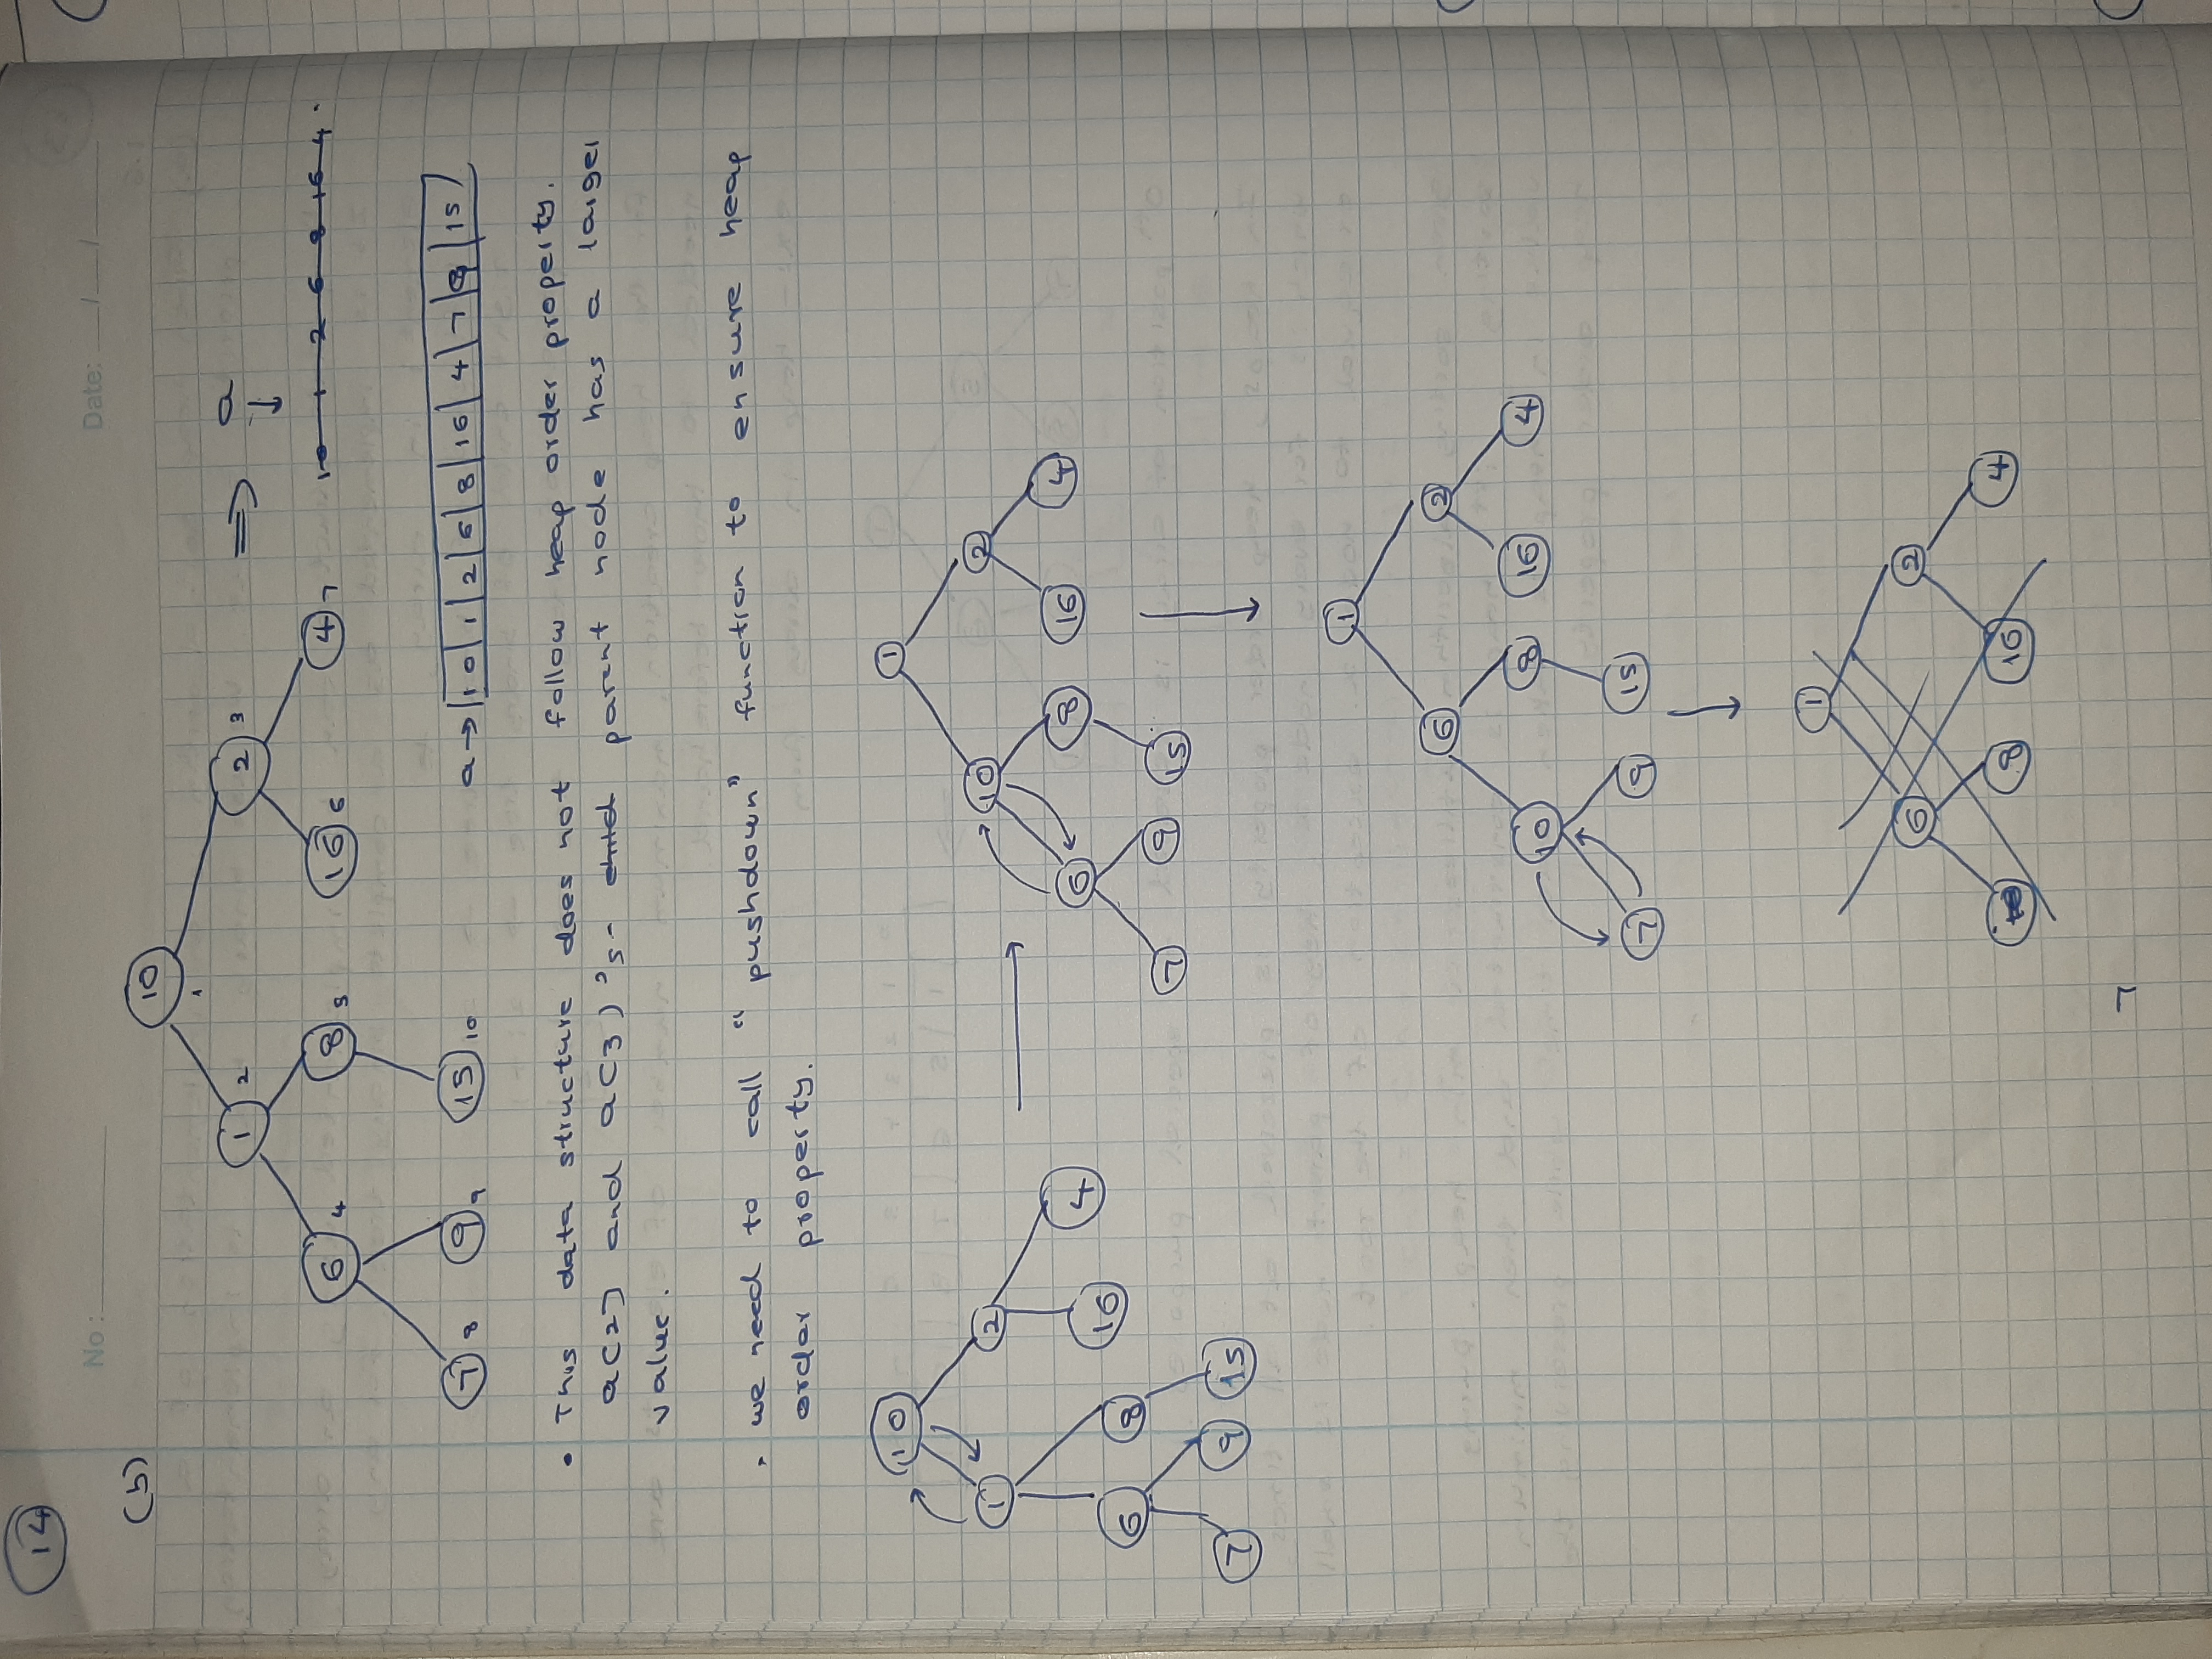 14
No : Date: / /
(b)
10
1
1 2 2 3 ⇒ a
↓
6 4 8 5 16 6 4 7 10 1 2 6 8 16 4
7 8 9 9 15 10 a → 10 | 1 | 2 | 6 | 8 | 16 | 4 | 7 | 9 | 15
• This data structure does not follow heap order property.
a[2] and a[3]'s - child parent node has a larger
value.
• we need to call "pushdown" function to ensure heap
order property.
10
1 2
6 8 16 4
7 9 15
1
10 2
6 8 16 4
7 9 15
1
6 2
10 8 16 4
7 9 15
1
6 2
8 16 4
7